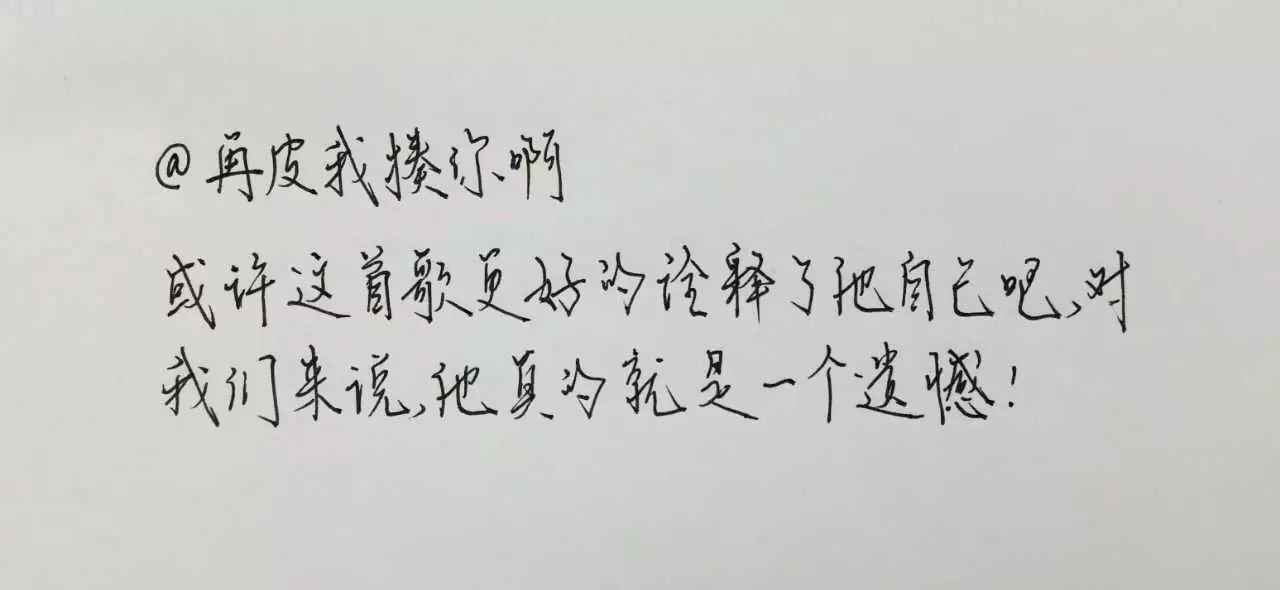 @再皮我揍你啊
或许这首歌更好的诠释了他自己吧,对
我们来说,他真的就是一个遗憾!